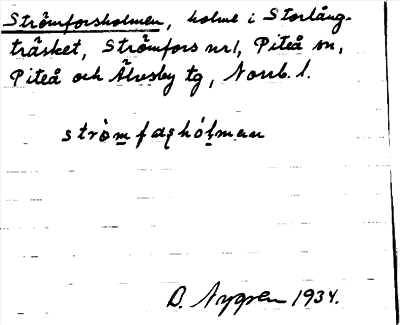 Strömforsholmen, holme i Storlång-
träsket, Strömfors nr 1, Piteå sn,
Piteå och Älvsby tg, Norrb. l.
D. Nygren 1934.